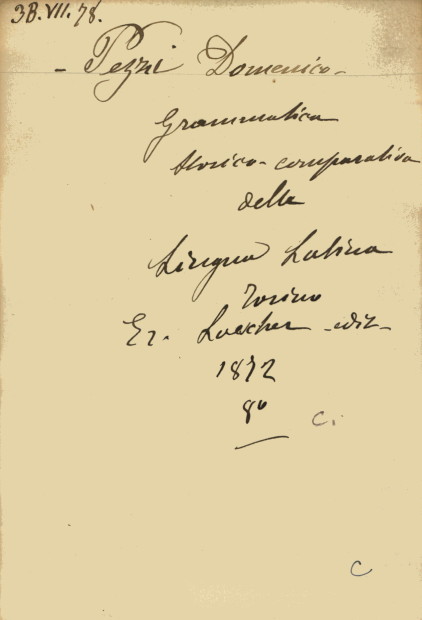 3B.VII.78.
- Pezzi Domenico -
Grammatica
storico-comparativa
della
Lingua Latina
Torino
Er. Loescher - edit -
1872
8º C.
C